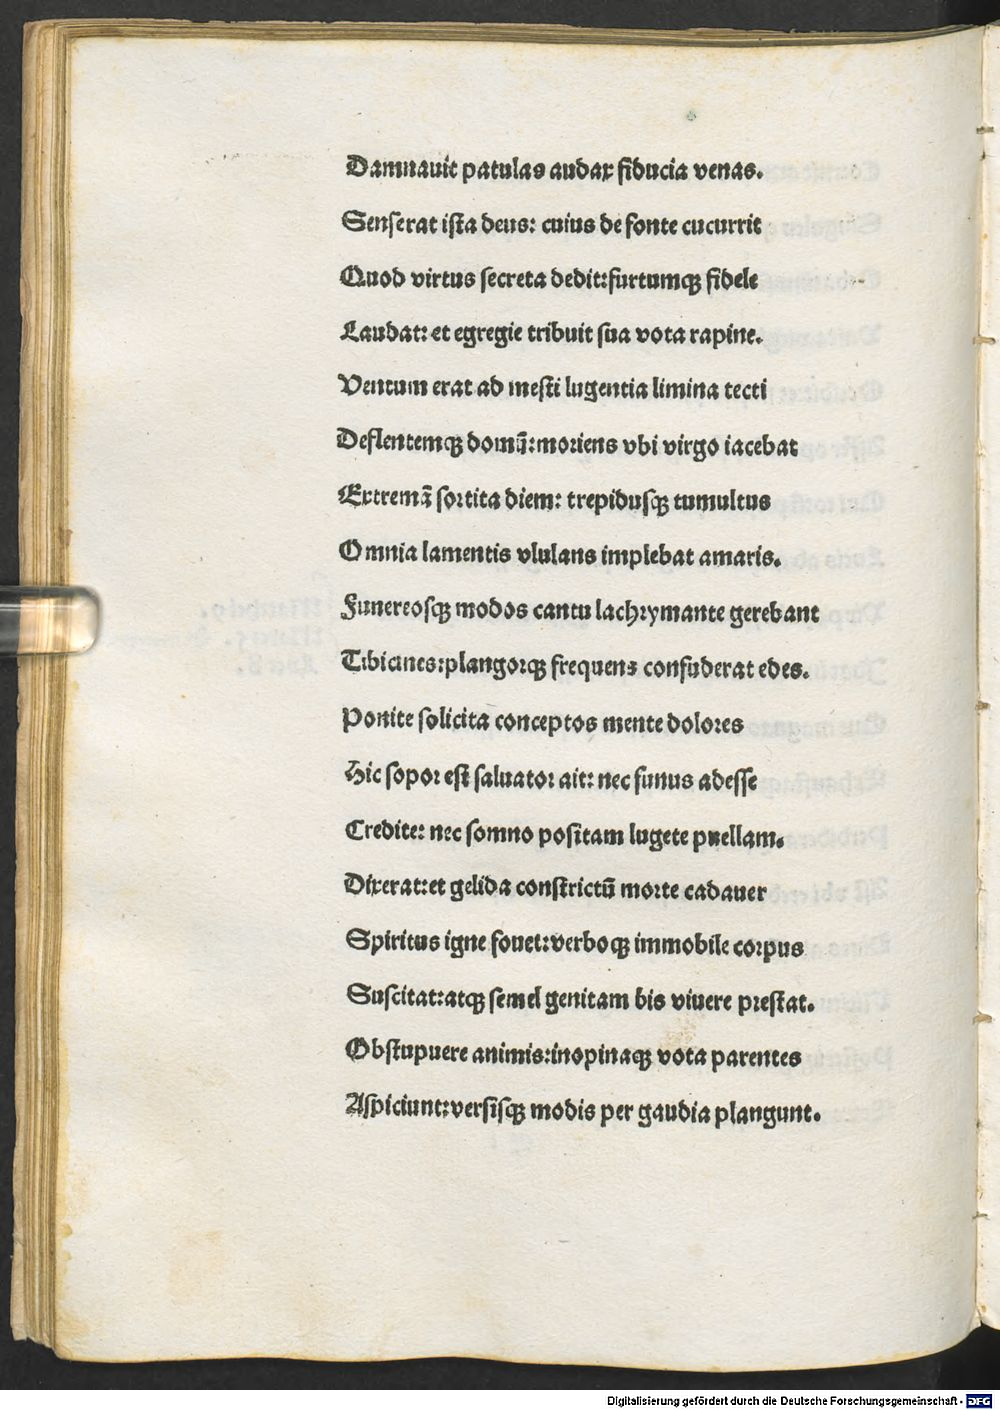 Damnauit patulas audax fiducia venas.
Senserat ista deus: cuius de fonte cucurrit
Quod virtus secreta dedit:furtumqꝫ fidele
Laudat: et egregie tribuit sua vota rapine.
Ventum erat ad mesti lugentia limina tecti
Deflentemqꝫ domū:moriens vbi virgo iacebat
Extremā sortita diem: trepidusqꝫ tumultus
Omnia lamentis vlulans implebat amaris.
Funereosqꝫ modos cantu lachrymante gerebant
Tibicines:plangorqꝫ frequens confuderat edes.
Ponite solicita conceptos mente dolores
Hic sopor est saluator ait: nec funus adesse
Credite: nec somno positam lugete puellam.
Dixerat:et gelida constrictū morte cadauer
Spiritus igne fouet:verboqꝫ immobile corpus
Suscitat:atqꝫ semel genitam bis viuere prestat.
Obstupuere animis:inopinaqꝫ vota parentes
Aspiciunt:versisqꝫ modis per gaudia plangunt.
Digitalisierung gefördert durch die Deutsche Forschungsgemeinschaft - DFG